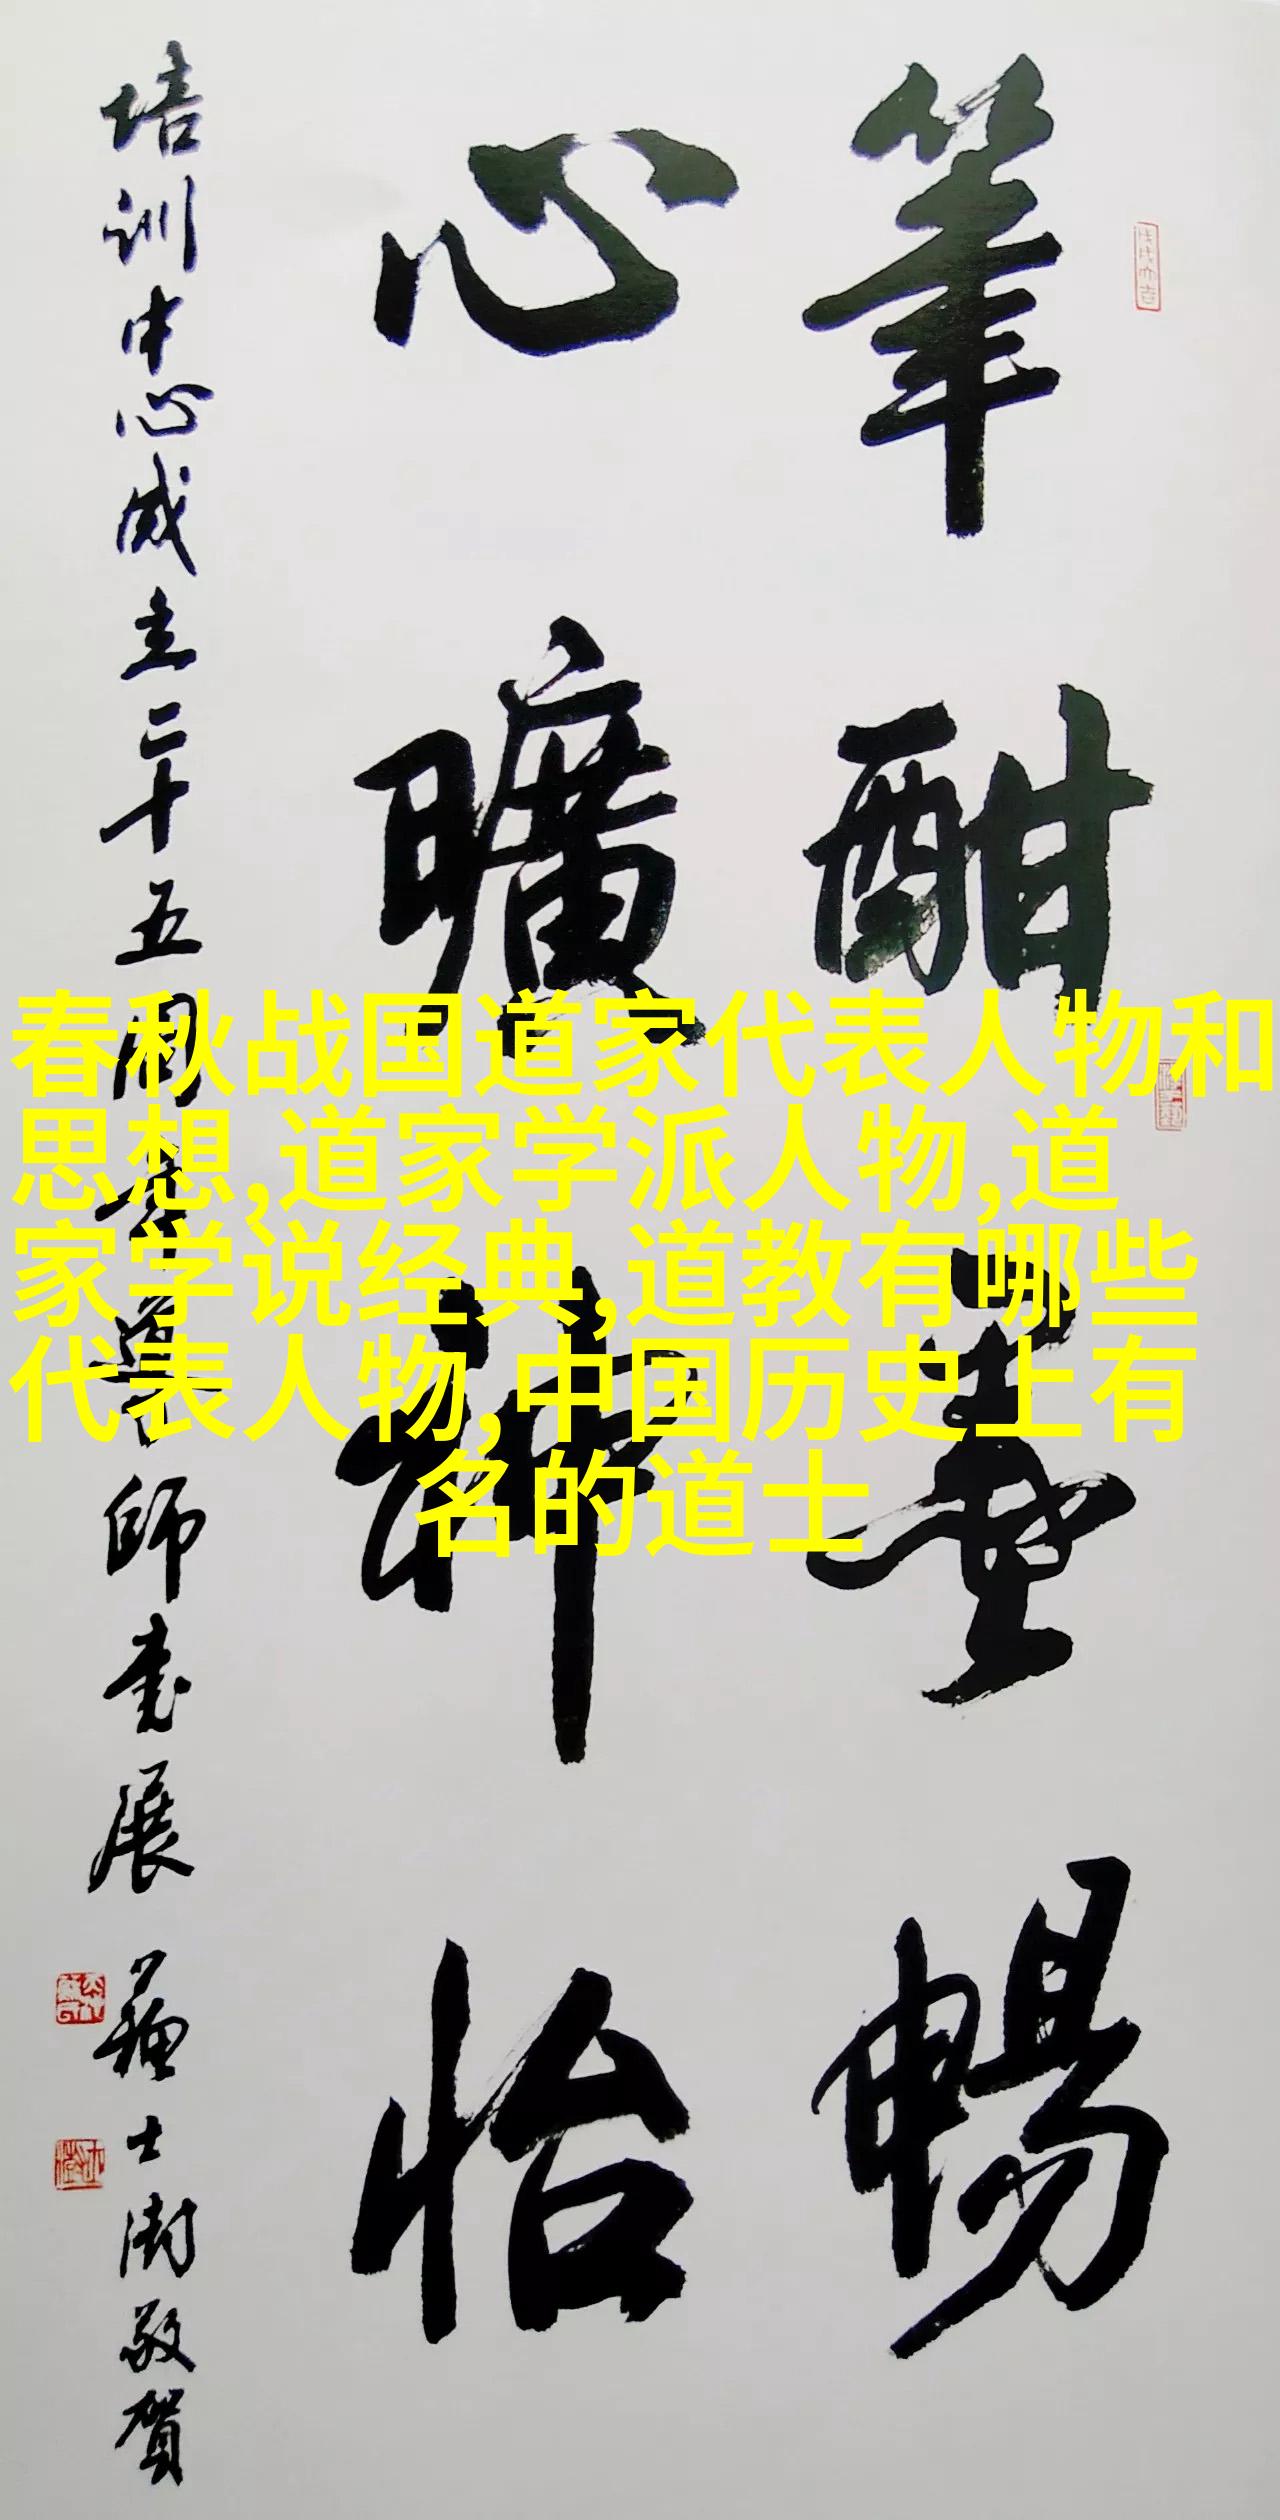 筆酣墨暢
心曠神怡
培训中心成立二十五周年導師書展
蘇士澍敬賀
春秋战国道家代表人物和
思想,道家学派人物,道
家学说经典,道教有哪些
代表人物,中国历史上有
名的道士